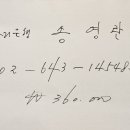 은행 송영란
02-643-14548
₩360.000